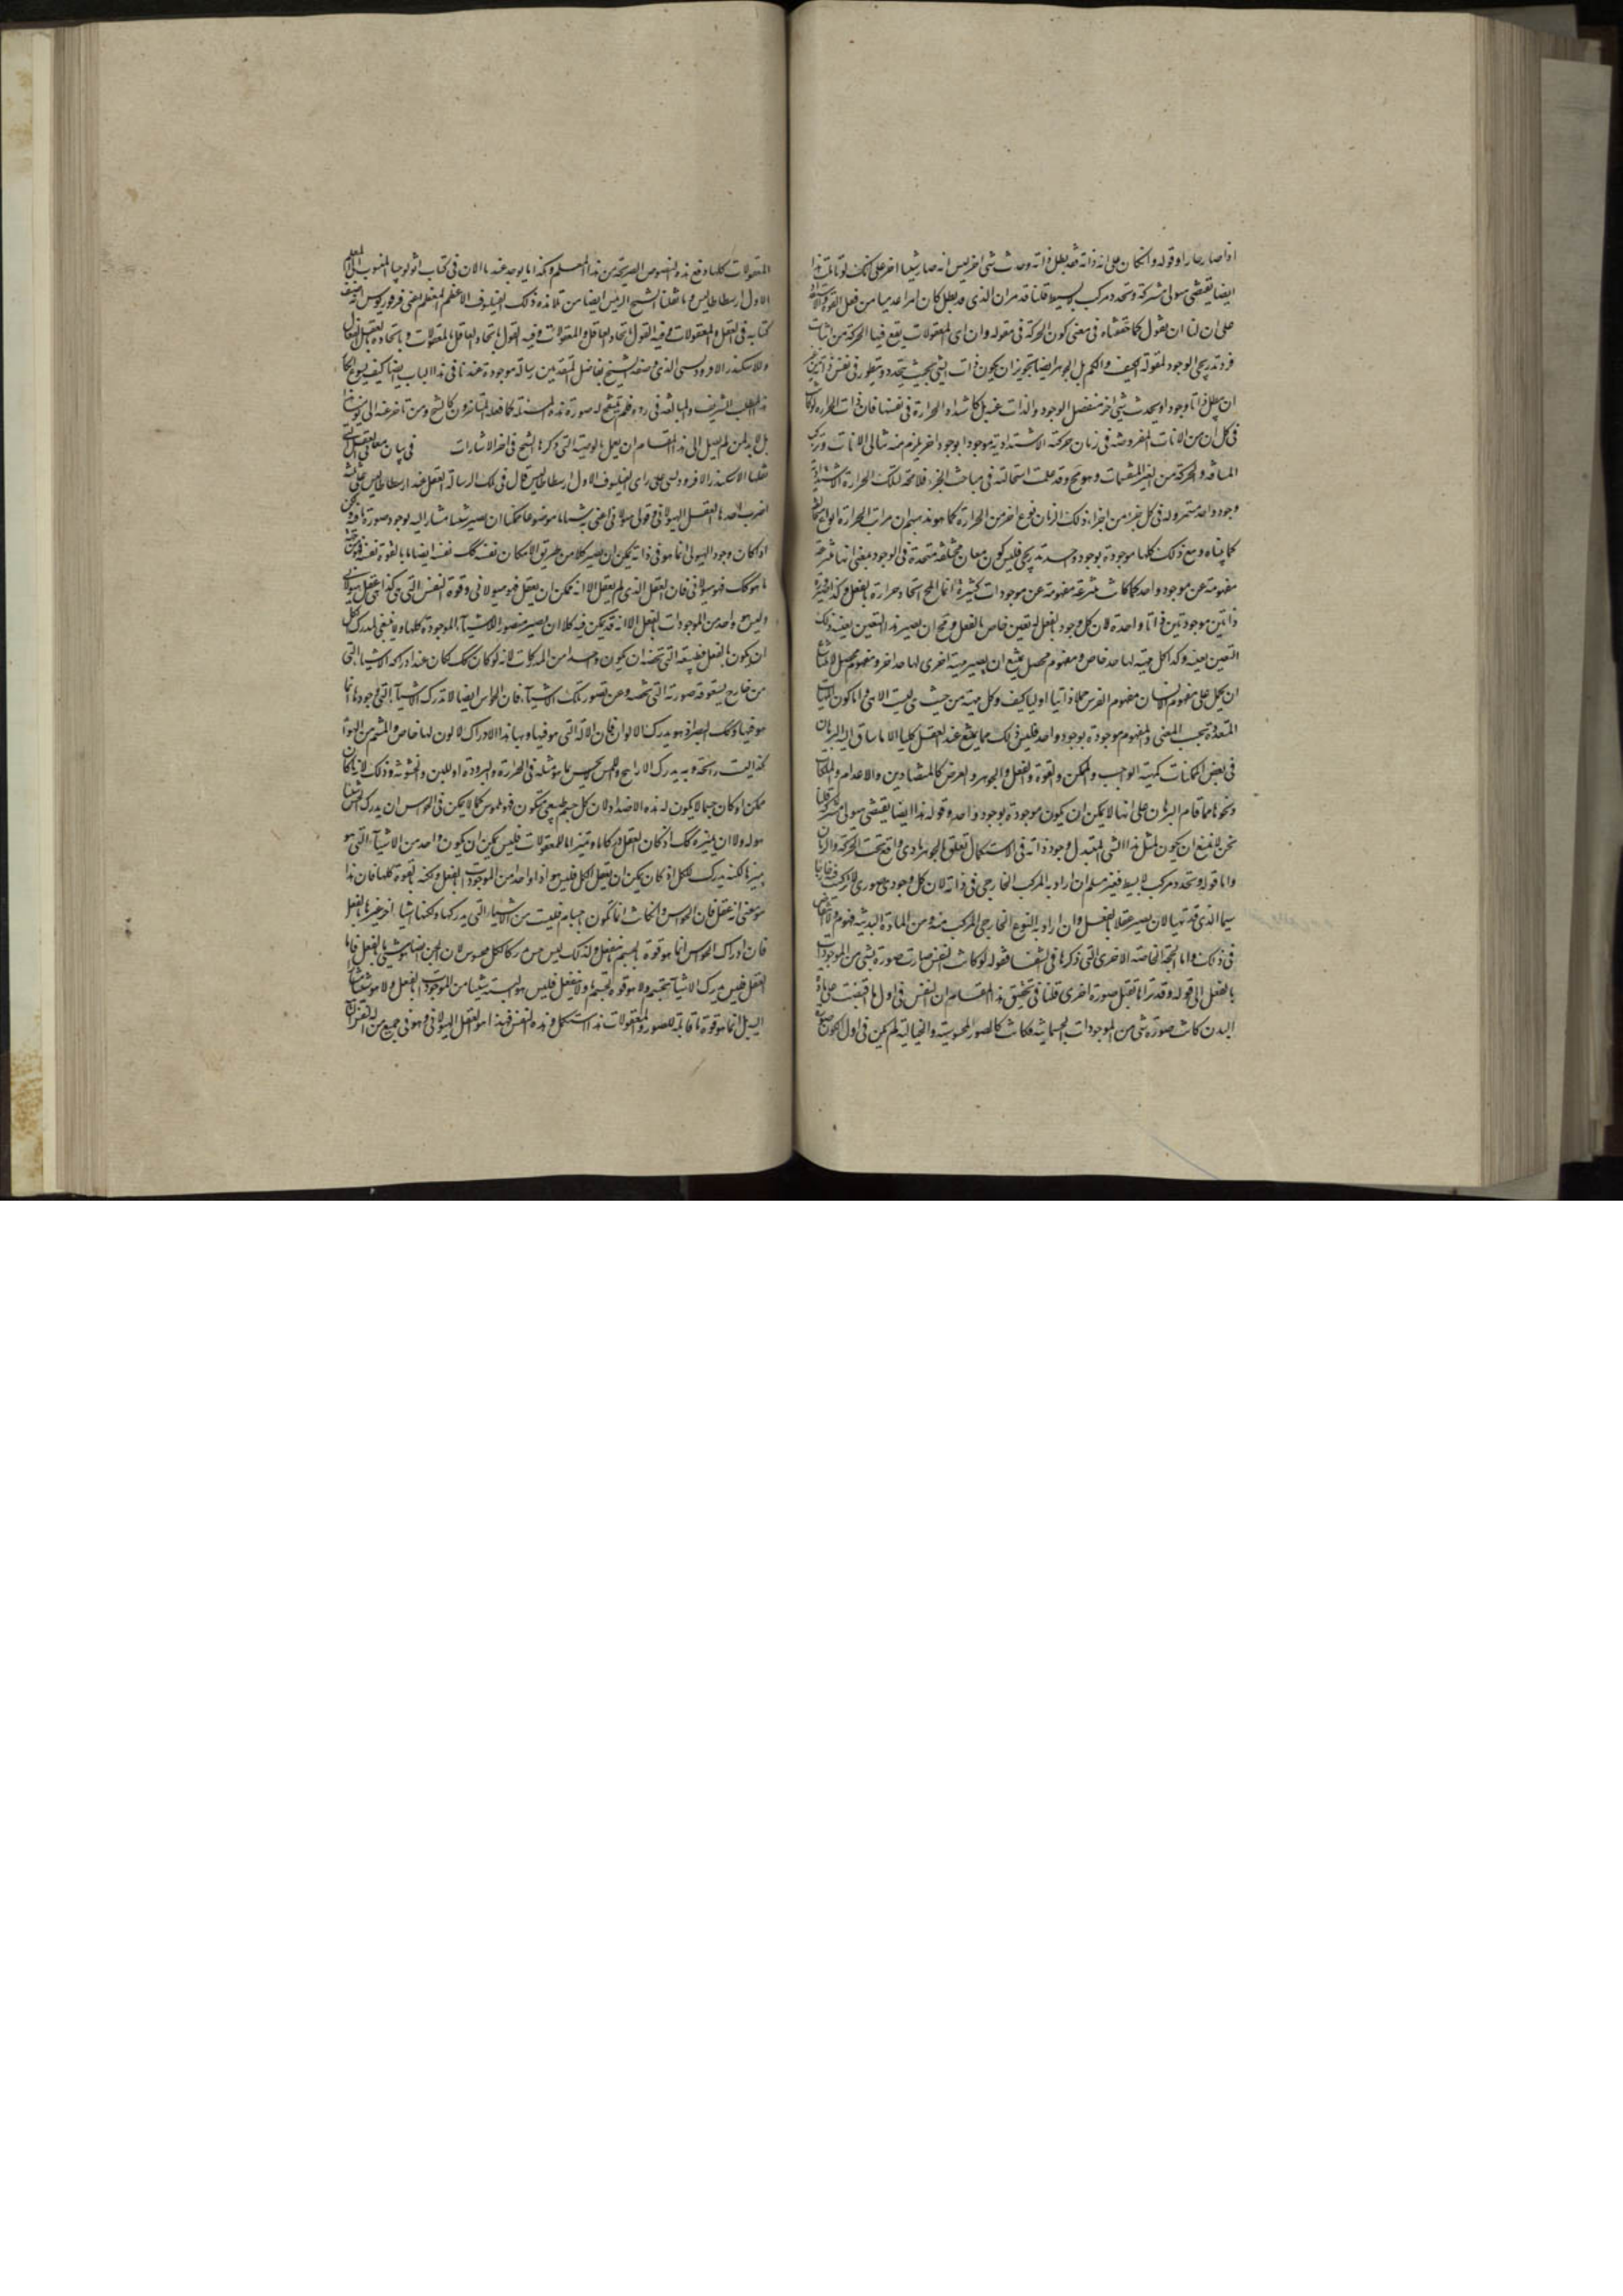 اذا صار حارا وقوله وان كان على انه ذاته فقد بطل ذاته وحدث شيء اخر ليس انه صار شيئا اخر على انك لو تاملت هذا
ايضا يقتضي هيولى مشتركة وتجدد مركب لا بسيط قلنا قد مر ان الذي قد بطل كان امرا عدميا من فعل القوة والاستعداد
على ان لنا ان نقول كما حققناه في معنى كون الحركة في مقولة وان اى المقولات يقع فيها الحركة من اثبات
فرد تدريجي الوجود لمقولة الكيف والكم بل الجوهر ايضا بتجويز ان يكون ذات الشيء بحيث يتجدد ويتطور في نفس ذاته من غير
ان يبطل ذاتا ووجودا ويحدث شيء اخر منفصل الوجود والذات عنه بل كاشتداد الحرارة في نفسها فان ذات الحرارة لو كانت
في كل ان من الانات المفروضة في زمان حركته الاشتدادية موجودا بوجود اخر يلزم منه تتالى الانات وتركب
المسافة والحركة من الغير المنقسمات وهو مح وقد علمت استحالته في مباحث الجزء فلا محة لتلك الحرارة الاشتدادية
وجود واحد مستمر وله في كل جزء من اجزاء ذلك الزمان نوع اخر من الحرارة كما هو عندهم ان مراتب الحرارة انواع متخالفة
كما بيناه ومع ذلك كلها موجودة بوجود واحد تدريجي فليس كون معان مختلفة متحدة في الوجود بمعنى انها منتزعة
مفهومة عن موجود واحد كما كانت منتزعة مفهومة عن موجودات كثيرة انما المح اتحاد حرارة بالفعل وكذا صيرورة
ذاتين موجودتين ذاتا واحدة لان كل وجود بالفعل له تعين خاص بالفعل ومح ان يصير هذا التعين بعينه ذلك
التعين بعينه وكذا كل مهية لها حد خاص ومفهوم محصل يمتنع ان يصير مهية اخرى لها حد اخر ومفهوم محصل لامتناع
ان يحمل على مفهوم الانسان مفهوم الفرس حملا ذاتيا اوليا كيف وكل مهية من حيث هي ليست الا هي واما كون المهيات
المتعددة بحسب المعنى والمفهوم موجودة بوجود واحد فليس ذلك مما يمتنع عند العقل كليا الا ما ساق اليه البرهان
في بعض الممكنات كمهية الواجب والممكن والقوة والفعل والجوهر والعرض كالمتضادين والاعدام والملكات
ونحوها مما قام البرهان على انها لا يمكن ان يكون موجودة بوجود واحد وقوله هذا ايضا يقتضي هيولى مشتركة قلنا
نحن لا نمنع ان يكون لمثل هذا الشيء المتبدل وجود ذاته في الاستكمال تعلق بالجوهر مادي واقع تحت الحركة والزمان
واما قوله وتجدد مركب لا بسيط فغير مسلم ان اراد به المركب الخارجي في ذاته لان كل وجود صوري لا تركيب فيه خارجا
سيما الذي قد تهيا لان يصير عقلا بالفعل وان اراد به النوع الخارجي المركب منه ومن المادة البدنية فهو
في ذلك واما الحجة الخاصة الاخرى التي ذكرها في الشفا فقوله لو كانت النفس صارت صورة شيء من الموجودات
بالفعل الى قوله وقد نراها تقبل صورة اخرى قلنا في تحقيق هذا المقام ان النفس في اول ما افيضت على مادة
البدن كانت صورة شيء من الموجودات الجسمانية فكانت كالصور المحسوسة والخيالية لم يكن في اول الكون صورة
المعقولات كلها ومع هذه النصوص الصريحة من هذا المعلم وهكذا ما يوجد عنده الان في كتاب اثولوجيا المنسوب الى المعلم
الاول ارسطاطاليس وما نقلنا الشيخ الرئيس ايضا من تلامذة ذلك الفيلسوف الاعظم المعظم يعني فرفوريوس انه صنف
كتابه في العقل والمعقولات وفيه القول باتحاد العاقل والمعقولات وفيه القول باتحاد العاقل بالمعقولات وباتحاده بالعقل الفعال
وللاسكندر الافرودسي الذي وصفه الشيخ بفاضل المتقدمين رسالة موجودة عندنا في هذا الباب ايضا كيف يسوغ انكار
هذا المطلب الشريف والمبالغة في رده ولم ينقح له صورة هذه المسئلة كما فعله المتاخرون كالشيخ ومن تاخر عنه الى يومنا هذا
بل لا بد لمن لم يصل الى هذا المقام ان يعمل بالوصية التي ذكرها الشيخ في اخر الاشارات في بيان معاني العقل التي
نقلها الاسكندر الافرودسي على راى الفيلسوف الاول ارسطاطاليس قال في تلك الرسالة العقل عند ارسطاطاليس على ثلثة
اضرب احدها العقل الهيولاني وقولي هيولاني اعني به شيئا ما موضوعا ممكنا ان يصير شيئا مشارا اليه بوجود صورة ما فيه ولكن
اذ كان وجود الهيولى انما هو في ذاته يمكن ان يصير كلا من طريق الامكان نفسه كك نفسه ايضا ما بالقوة نفسه فهو من جهة
ما هو كك فهو هيولاني فان العقل الذي لم يعقل الا انه ممكن ان يعقل فهو هيولاني وقوة النفس التي هي كذا هي عقل هيولاني
وليس هو واحدا من الموجودات بالفعل الا انه قد يمكن فيه كلا ان يصير متصورا للاشياء الموجودة كلها ولا ينبغي لمدرك الكل
ان يكون بالفعل بطبيعته التي تخصه ان يكون واحدا من المدركات لانه لو كان كك كان عند ادراكه الاشياء التي
من خارج يستعوقه صورته التي تخصه عن تصور تلك الاشياء فان الحواس ايضا لا تدرك الاشياء التي وجودها انما
هو فيها وكك البصر اذ هو يدرك الالوان فان الالة التي هو فيها وبها هذا الادراك لا لون لها خاص والمشم من الهواء
كذا ليست رائحة وبه يدرك الارايح واللمس لا يحس بما هو مثله في الحرارة والبرودة او اللين والخشونة وذلك لانه ما كان
ممكن اذ كان جسما لا يكون له هذه الاضداد لان كل جسم طبيعي متكون فهو ملموس كما لا يمكن في الحواس ان يدرك الحس شيئا
هو له ولا ان يميزه كك اذ كان للعقل دركا ما وتميز ما للمعقولات فليس يمكن ان يكون واحدا من الاشياء التي هو
يميزها لكنه يدرك للكل اذ كان يمكن ان يعقل الكل فليس هو اذا واحدا من الموجودات بالفعل ولكنه بالقوة كلها فان هذا
هو معنى انه عقل فان الحواس وان كانت انما تكون باجسام فليست هي الاشياء التي يدركها ولكنها اشياء اخر غيرها بالفعل
فان ادراك الحواس انما هو قوة بجسم ينفعل ولذلك ليس حس مدركا لكل محسوس لان الحس ايضا هو شيء ما بالفعل فاما
العقل فليس يدرك الاشياء بجسم ولا هو قوة لجسم ولا ينفعل فليس هو البتة شيئا من الموجودات بالفعل ولا هو شيئا مشارا
اليه بل انما هو قوة ما قابلة للصور والمعقولات هذا استكمل وهذه النفس فهذا هو العقل الهيولاني وهو في جميع من له النفس التامة